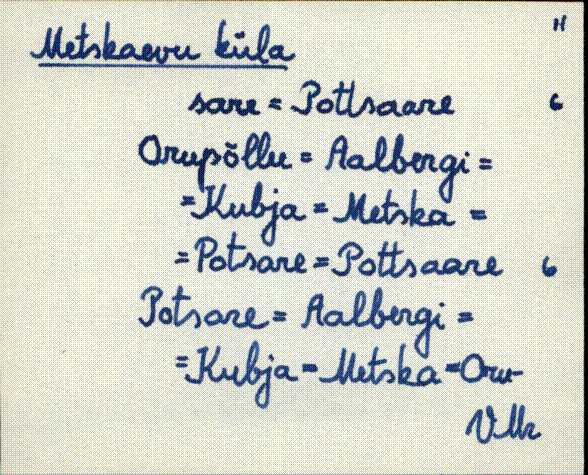 Metskaevu küla
sare = Pottsaare 6
Orupõllu = Aalbergi =
=Kubja = Metska =
=Potsare = Pottsaare 6
Potsare = Aalbergi =
=Kubja = Metska = Oru-
VMr